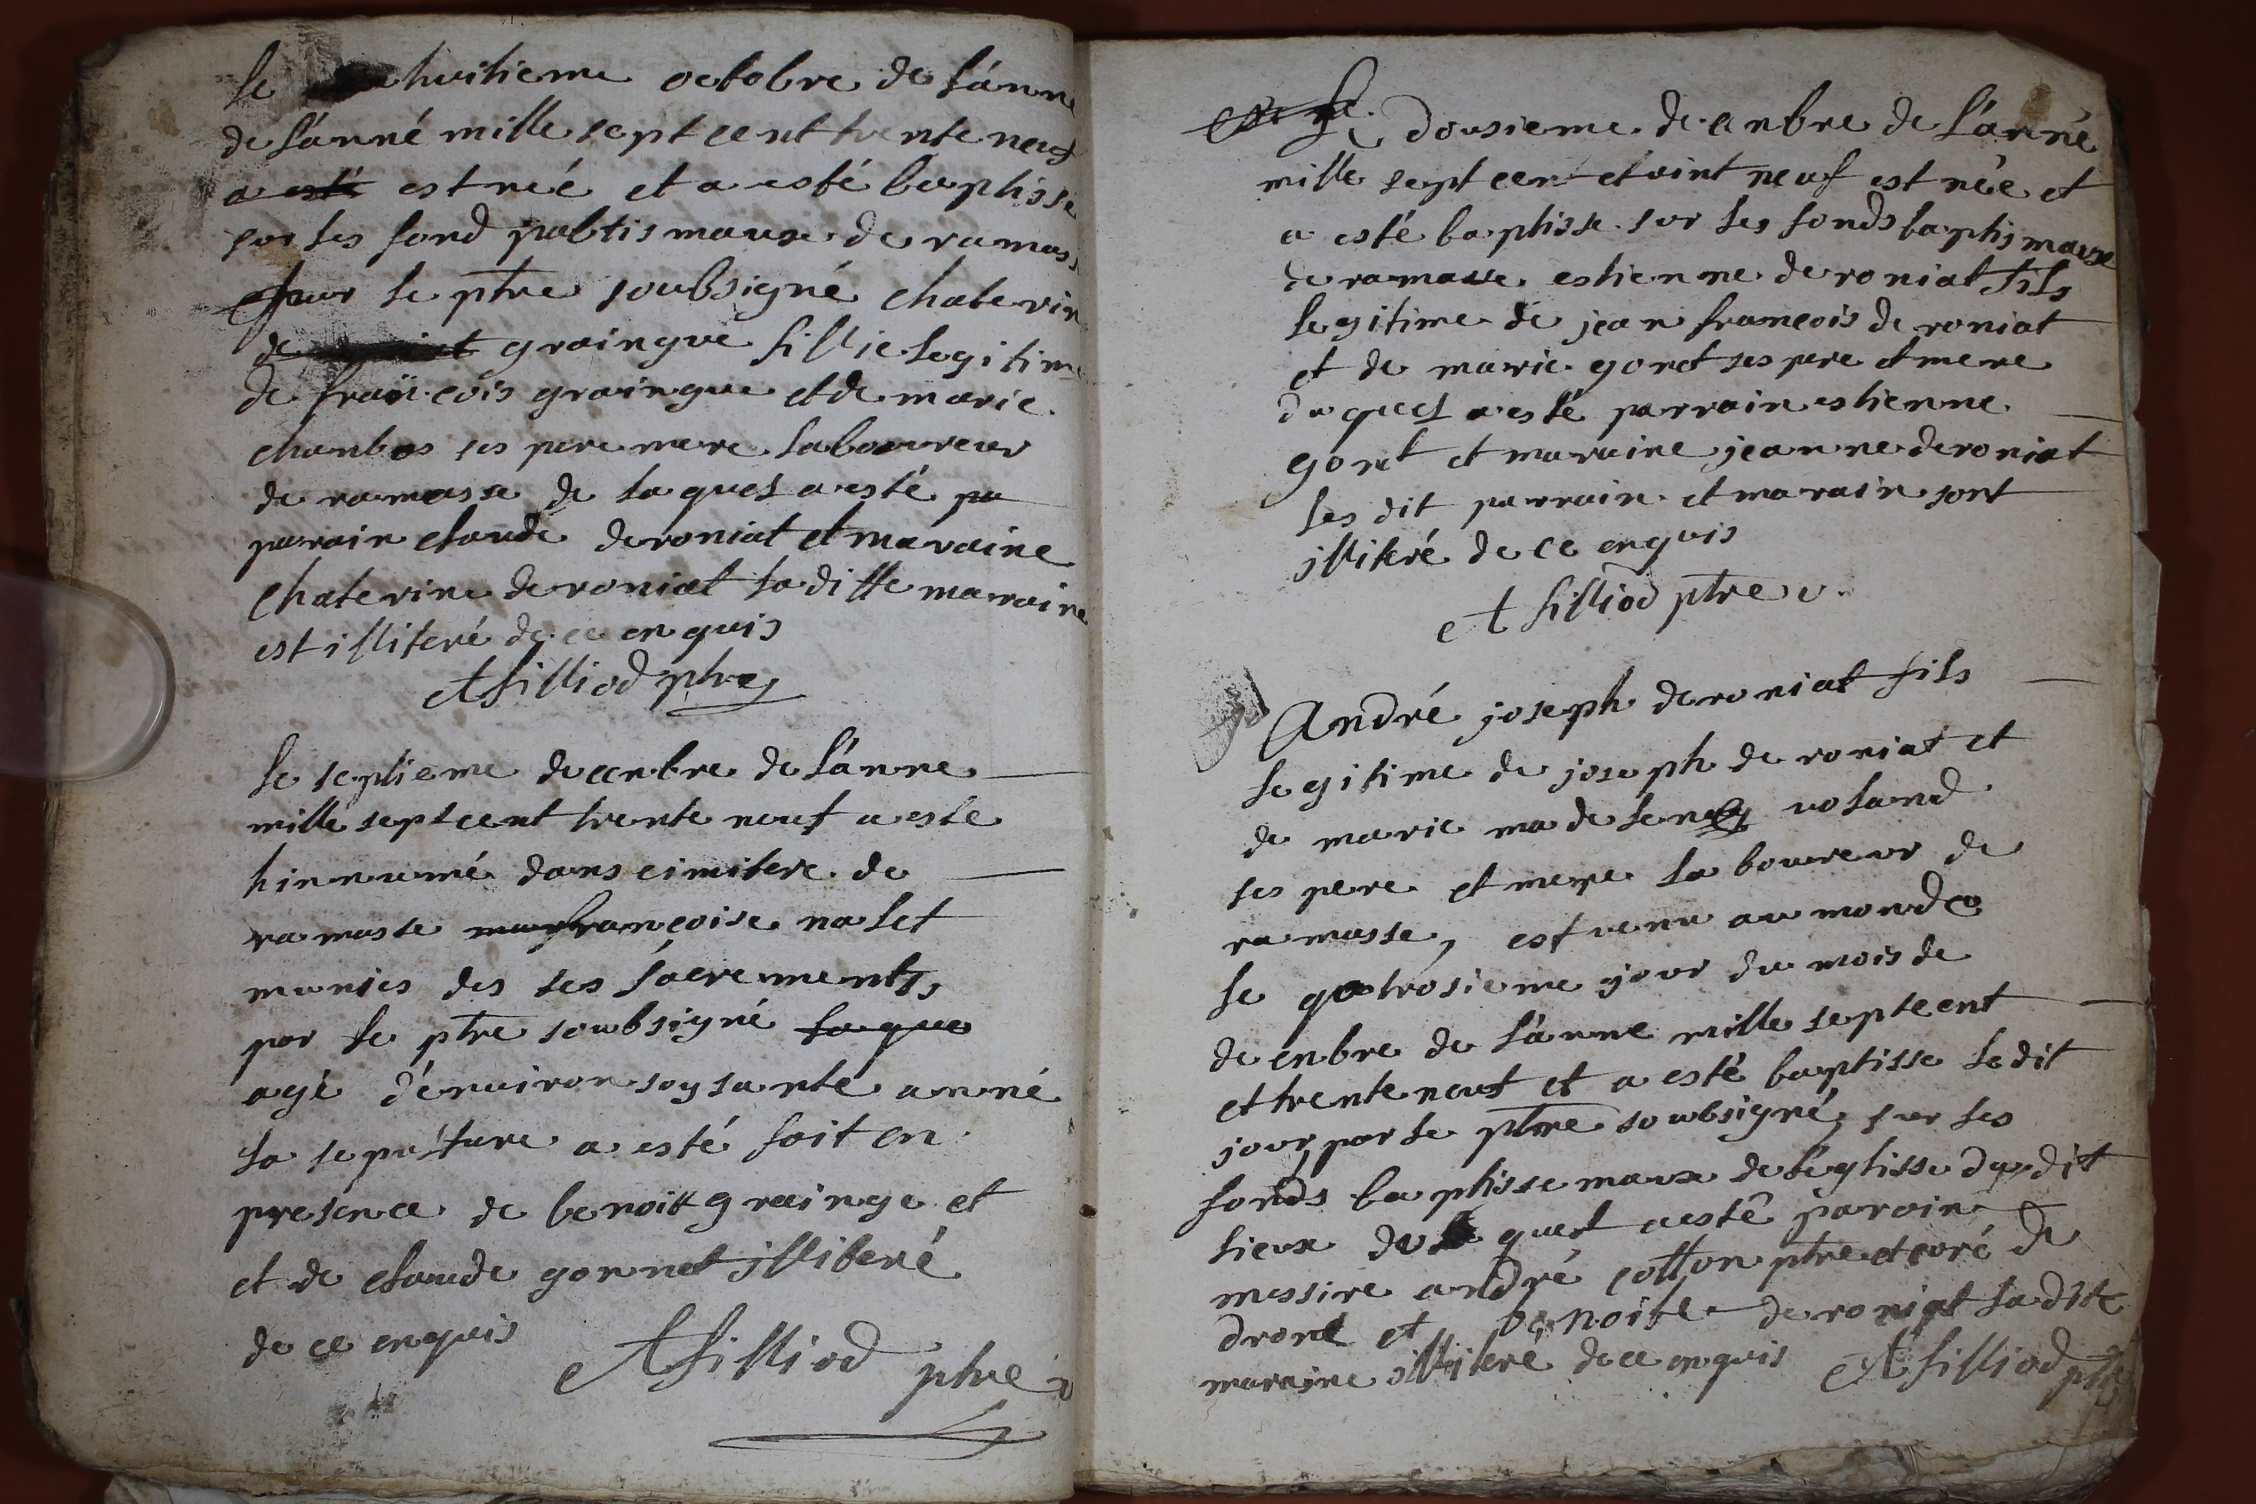 le huitieme octobre de l'anne
de l'anné mille sept cent trente neuf
a esté est neé et a esté baptisse
sur les fond pabtismaux de ramass
par le ptre soubsigné chaterin
de graingue fillie legitime
de françois graingue et de marie
chanbos ses pere mere laboureur
de ramasse de laquel a esté pa
parain claude deroniat et maraine
chaterine deroniat la ditte maraine
est illiteré de ce enquis
A filliod ptre
le septieme decenbre de l'anne
mille septcent trente neuf a este
hinnumé dans cimitere de
ramasse françoise nalet
munies des ses sacrements,
par le ptre soubsigné laque
agé d'environ soysante anné
la sepulture a esté fait en
presence de benoitt grainge et
et de claude gonnet illiteré
de ce enquis A filliod ptre v
Le dousieme decenbre de l'anné
mille sept cent et vint neuf est née et
a esté baptisse sur les fonds baptismaux
de ramasse estienne deroniat fils
legitime de jean francois deroniat
et de marie goret ses pere et mere
duquel a esté parrain estienne
goret et maraine jeanne deroniat
les dit parrain et marain sont
illiteré de ce enquis
A filliod ptre v.
André joseph deroniat fils
legitime de joseph de roniat et
de marie madelene voland
ses pere et mere laboureur de
ramasse, est venu au monde
le quatrosieme jour du mois de
decenbre de l'anne mille septcent
et trente neuf et a esté baptisse le dit
jour, par le ptre soubsigné, sur les
fonds baptissemaux de léglisse du dit
lieux du quel a esté parain
messire andré cotton ptre et curé de
drom et benoite deroniat la dite
maraine illiteré de ce enquis A filliod ptre